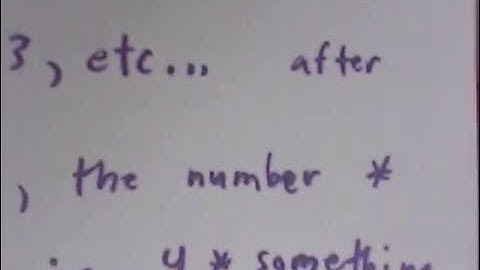 3, etc... after
, the number *
4 * something